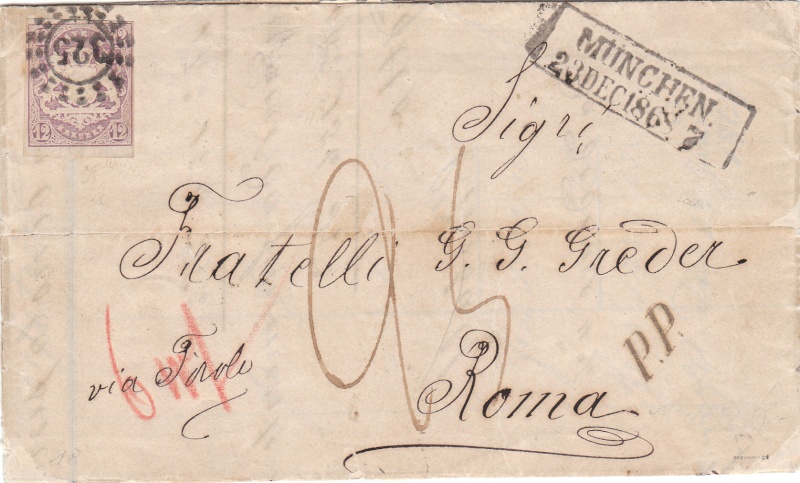 325
12 12
MÜNCHEN.
23 DEC 1868
7
Sigri
Fratelli G. G. Greder
25
P.P.
via Tirolo
Roma